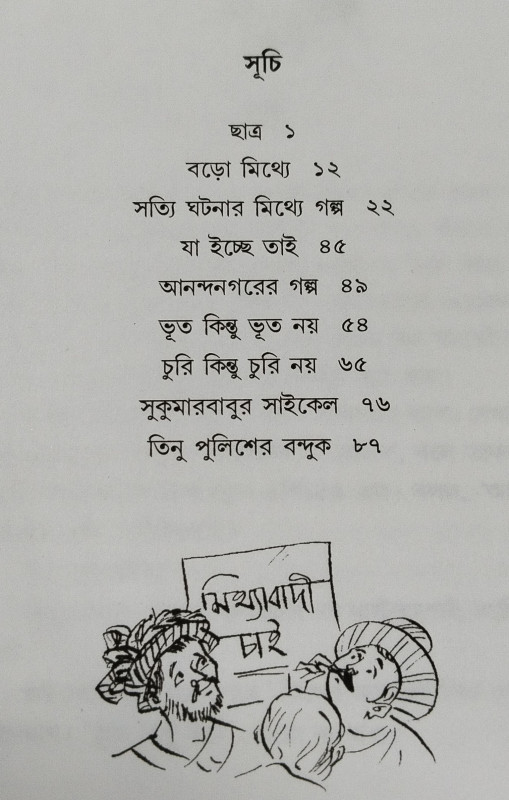 সূচি
ছাত্র ১
বড়ো মিথ্যে ১২
সত্যি ঘটনার মিথ্যে গল্প ২২
যা ইচ্ছে তাই ৪৫
আনন্দনগরের গল্প ৪৯
ভূত কিন্তু ভূত নয় ৫৪
চুরি কিন্তু চুরি নয় ৬৫
সুকুমারবাবুর সাইকেল ৭৬
তিনু পুলিশের বন্দুক ৮৭
মিথ্যাবাদী
চাই